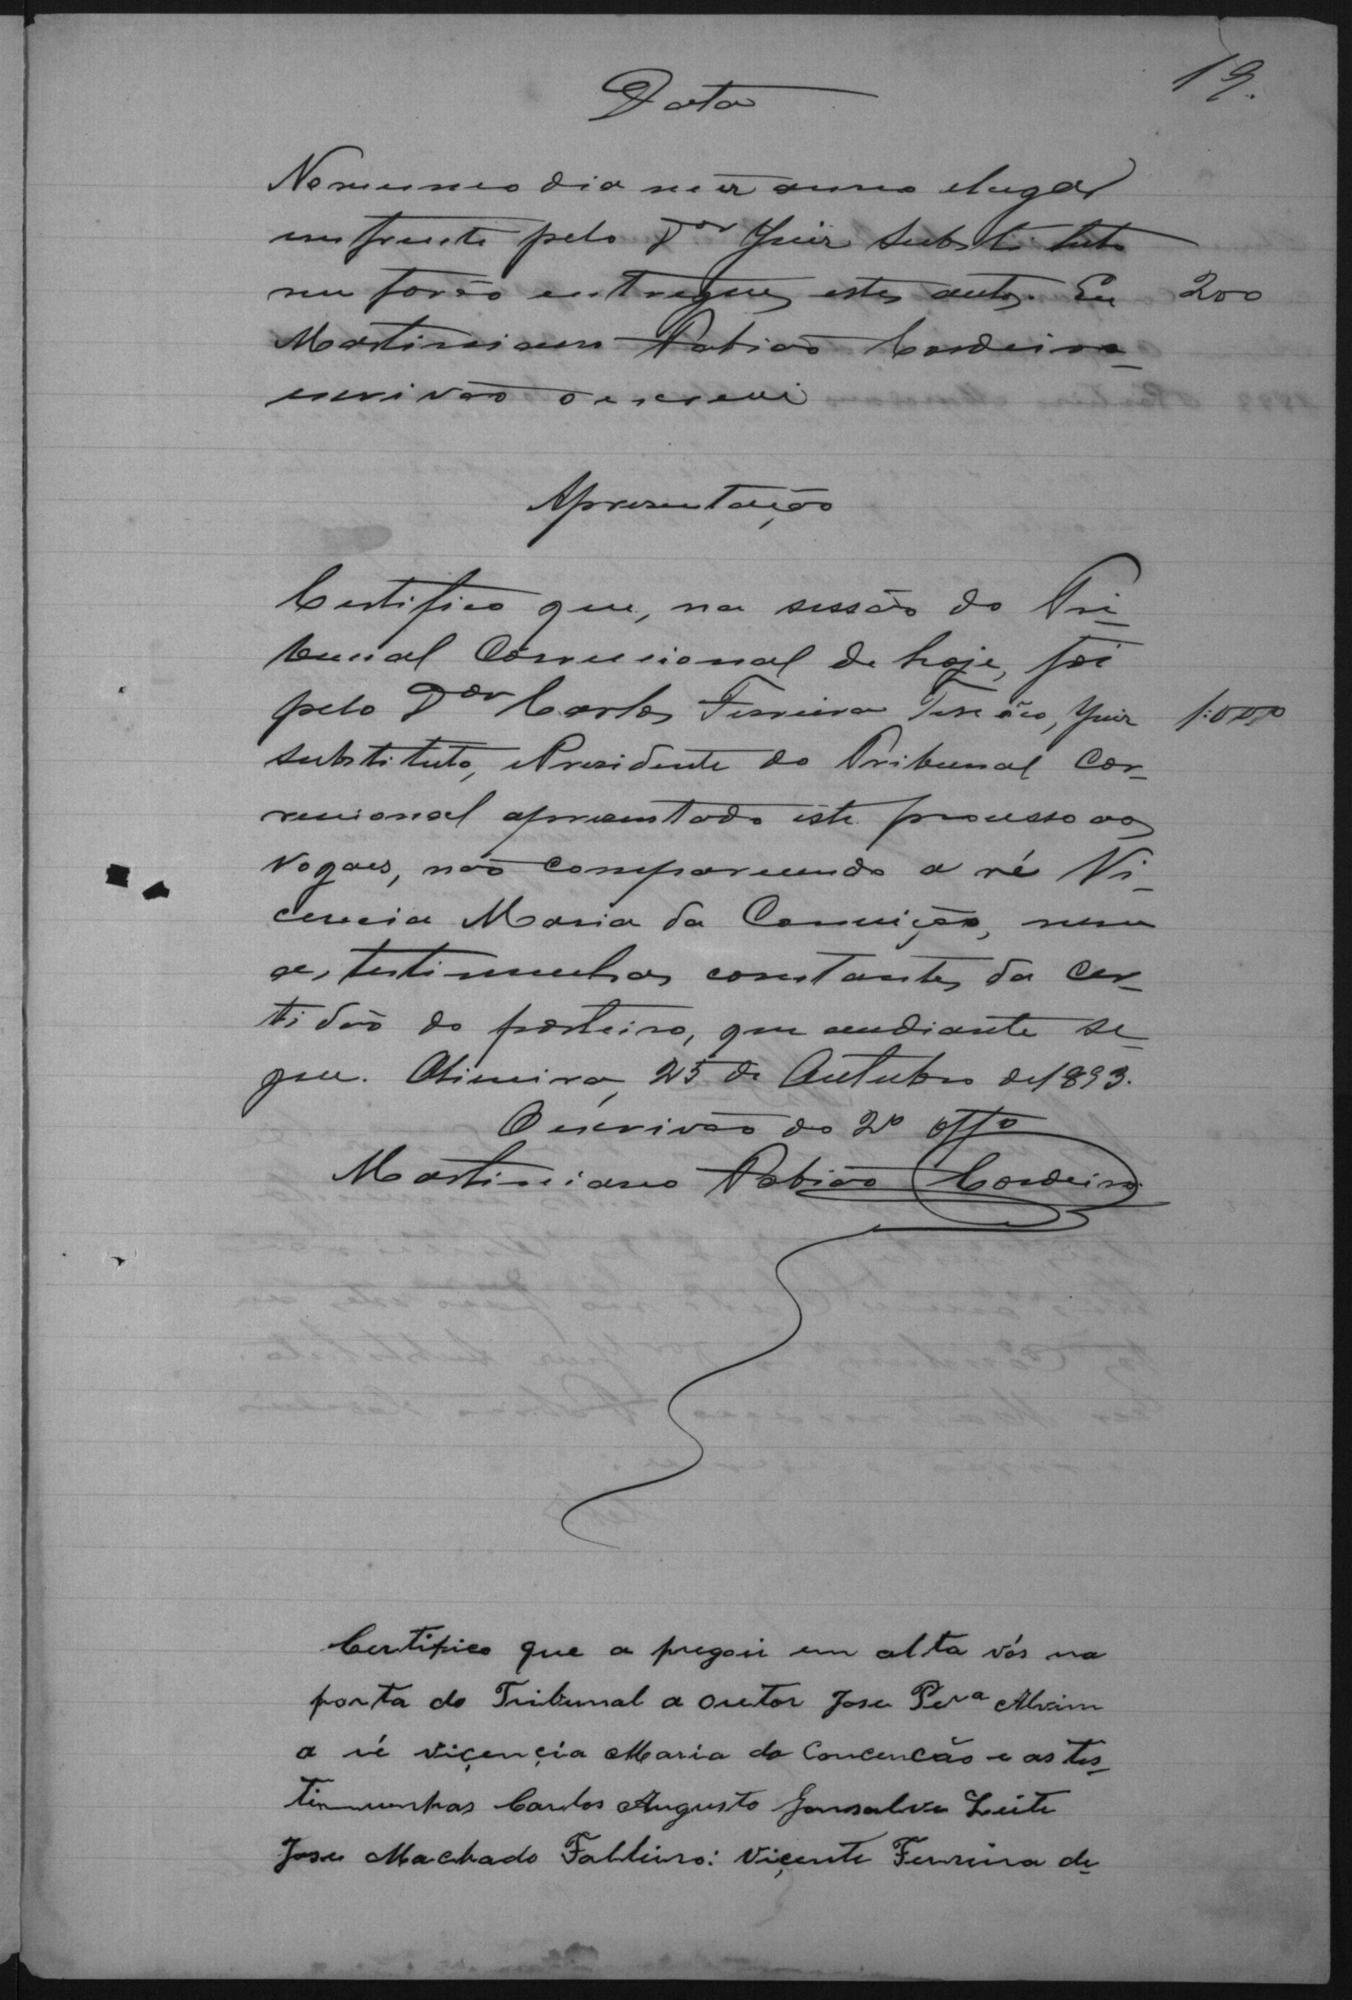 19.
Data
No mesmo dia mez anno e lugar
em frente pelo Dor Juiz Substituto
me forão entregues estes autos. Eu 200
Martiniano Fabião Cordeiro
escrivão o escrevi
Apresentação
Certifico que, na sessão do Tri-
bunal Correcional de hoje, foi
pelo Dor Carlos Ferreira Tinôco, Juiz 1:000
substituto, e Presidente do Tribunal Cor-
recional apresentado este processo aos
vogaes, não comparecendo a ré Vi-
cencia Maria da Conceição, nem
as testimunhas constantes da cer-
tidão do porteiro, que audiante se-
gue. 25 de Outubro de 1893.
O escrivão do 2o Offo
Martiniano Fabião Cordeiro
Certifico que a pregoei em alta vós na
porta do Tribunal a outor Jose Pera Alvim
a ré Viçençia Maria da Concencão e as tes-
timunhas Carlos Augusto Gonsalves Leite
Jose Machado Falleiro: Viçente Ferreira de